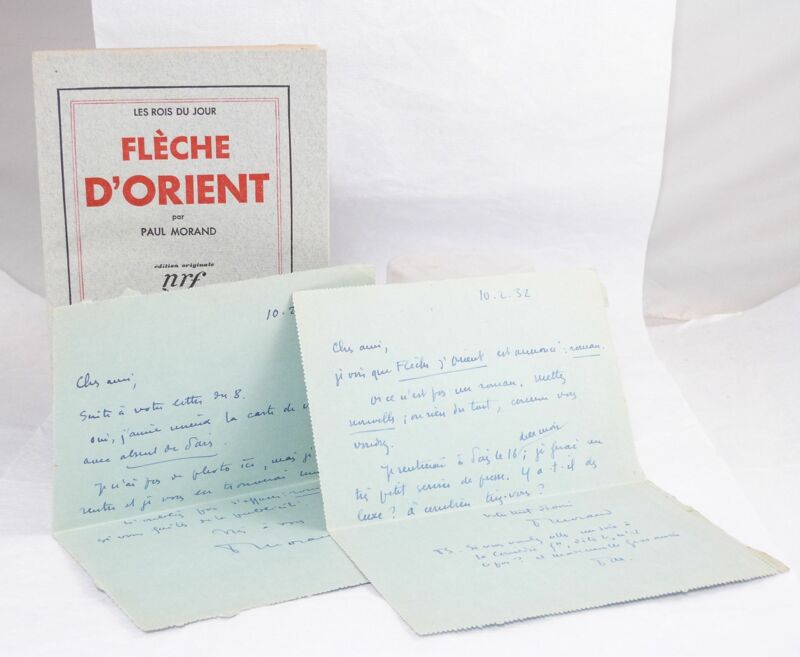 LES ROIS DU JOUR
FLÈCHE
D'ORIENT
par
PAUL MORAND
édition originale
nrf
10-2
Cher ami,
Suite à votre lettre du 8.
oui, j'aimerais la carte de
avec absent de Paris.
Je n'ai pas de photo ici, mais j
rentre et je vous en trouverai
si vous faites de la publicité
à vous
P Morand
10.2.32
Cher ami,
je vois que Flèche d'Orient est annoncé : roman.
or ce n'est pas un roman. Mettez
nouvelle ; ou rien du tout, comme vous
voudrez.
Je rentrerai à Paris le 16 ; je ferai un
très petit service de presse. Y a-t-il des
luxe ? à combien tirez-vous ?
P Morand
PS. Si vous voulez aller un soir à
la Comédie fse, dites le,
P.M.